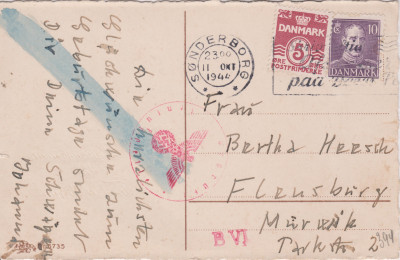 Die herzlichsten
Glückwünsche zum
Geburtstage sendet
Dir Deine Schwägerin
Johanna
SØNDERBORG
23 00
11 OKT
1944
DANMARK
5
ØRE
ØRE
POSTFRIMÆRKE
10
DANMARK
paa
Frau
Bertha Heesch
Flensburg
Mürwik
B VI